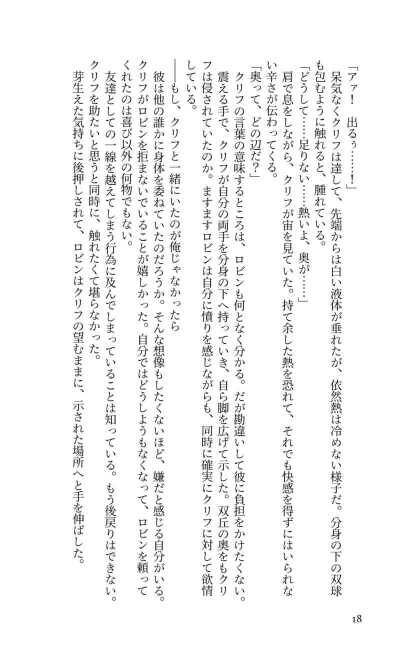 「アァ！　出るぅ……！」
　呆気なくクリフは達して、先端からは白い液体が垂れたが、依然熱は冷めない様子だ。分身の下の双球
も包むように触れると、腫れている。
「どうして……足りない……熱いよ、奥が……」
　肩で息をしながら、クリフが宙を見ていた。持て余した熱を恐れて、それでも快感を得ずにはいられな
い辛さが伝わってくる。
「奥って、どの辺だ？」
　クリフの言葉の意味するところは、ロビンも何となく分かる。だが勘違いして彼に負担をかけたくない。
　震える手で、クリフが自分の両手を分身の下へ持っていき、自ら脚を広げて示した。双丘の奥をもクリ
フは侵されていたのか。ますますロビンは自分に憤りを感じながらも、同時に確実にクリフに対して欲情
している。
――もし、クリフと一緒にいたのが俺じゃなかったら
　彼は他の誰かに身体を委ねていたのだろうか。そんな想像もしたくないほど、嫌だと感じる自分がいる。
クリフがロビンを拒まないでいることが嬉しかった。自分ではどうしようもなくなって、ロビンを頼って
くれたのは喜び以外の何物でもない。
　友達としての一線を越えてしまう行為に及んでしまっていることは知っている。もう後戻りはできない。
クリフを助けたいと思うと同時に、触れたくて堪らなかった。
　芽生えた気持ちに後押しされて、ロビンはクリフの望むままに、示された場所へと手を伸ばした。
18